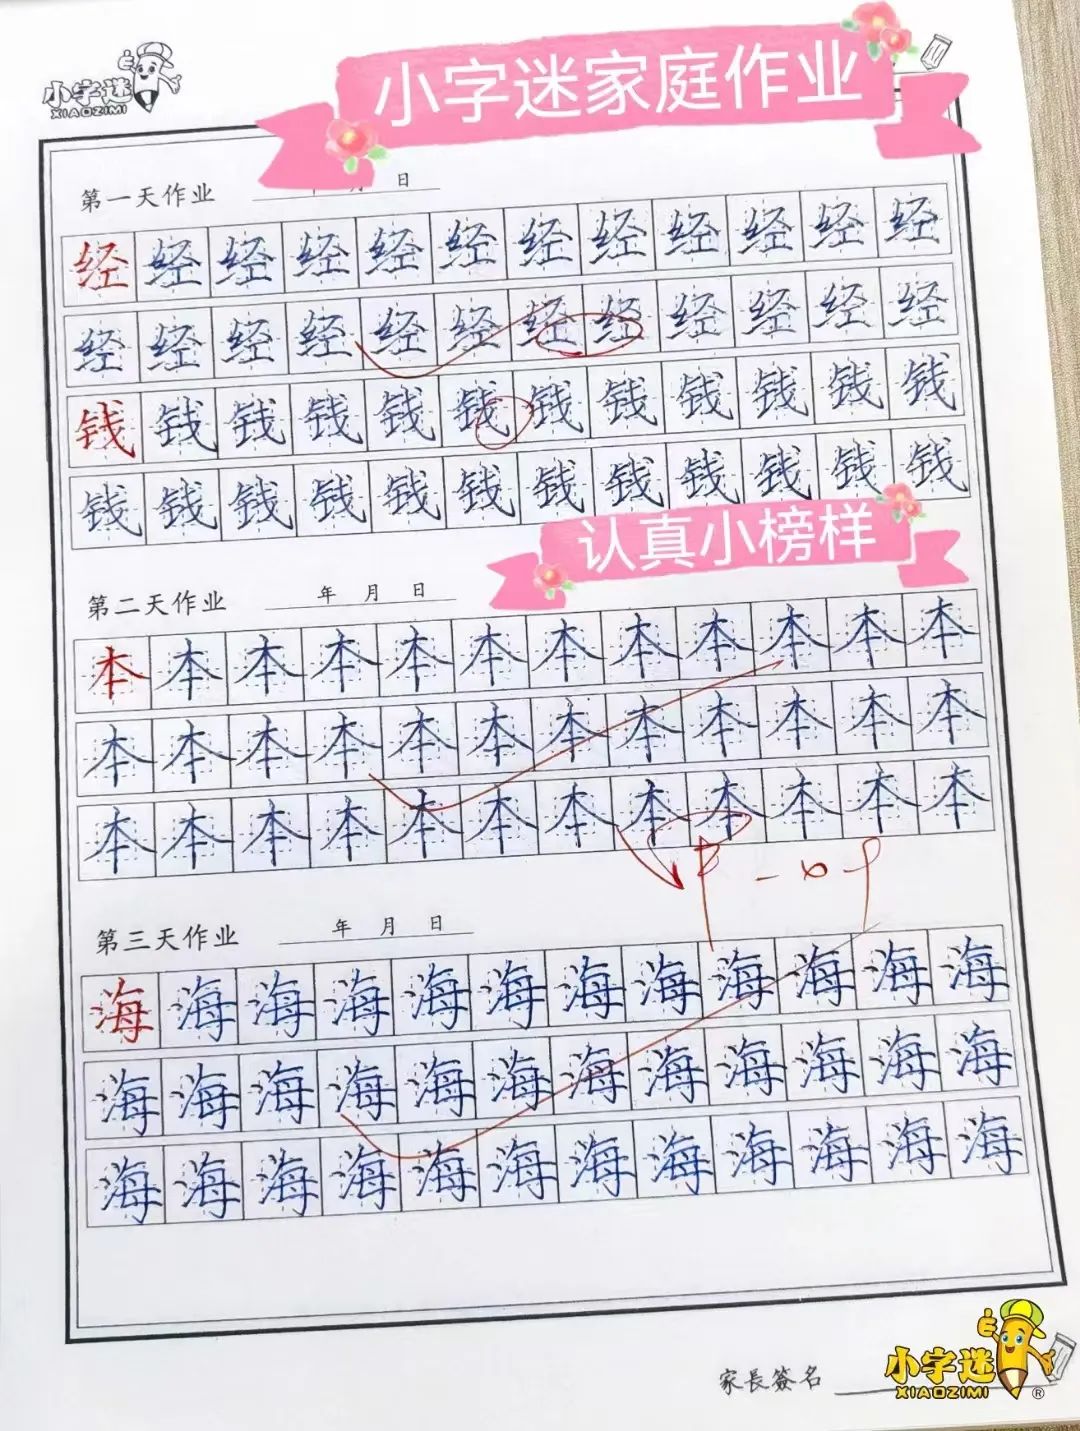 小字迷
XIAOZIMI
小字迷家庭作业
第一天作业 月 日
经经经经经经经经经经经经
经经经经经经经经经经经经
钱钱钱钱钱钱钱钱钱钱钱钱
钱钱钱钱钱钱钱钱钱钱钱钱
认真小榜样
第二天作业 年 月 日
本本本本本本本本本本本本
本本本本本本本本本本本本
本本本本本本本本本本本本
第三天作业 年 月 日
海海海海海海海海海海海海
海海海海海海海海海海海海
海海海海海海海海海海海海
家長簽名
小字迷
XIAOZIMI®